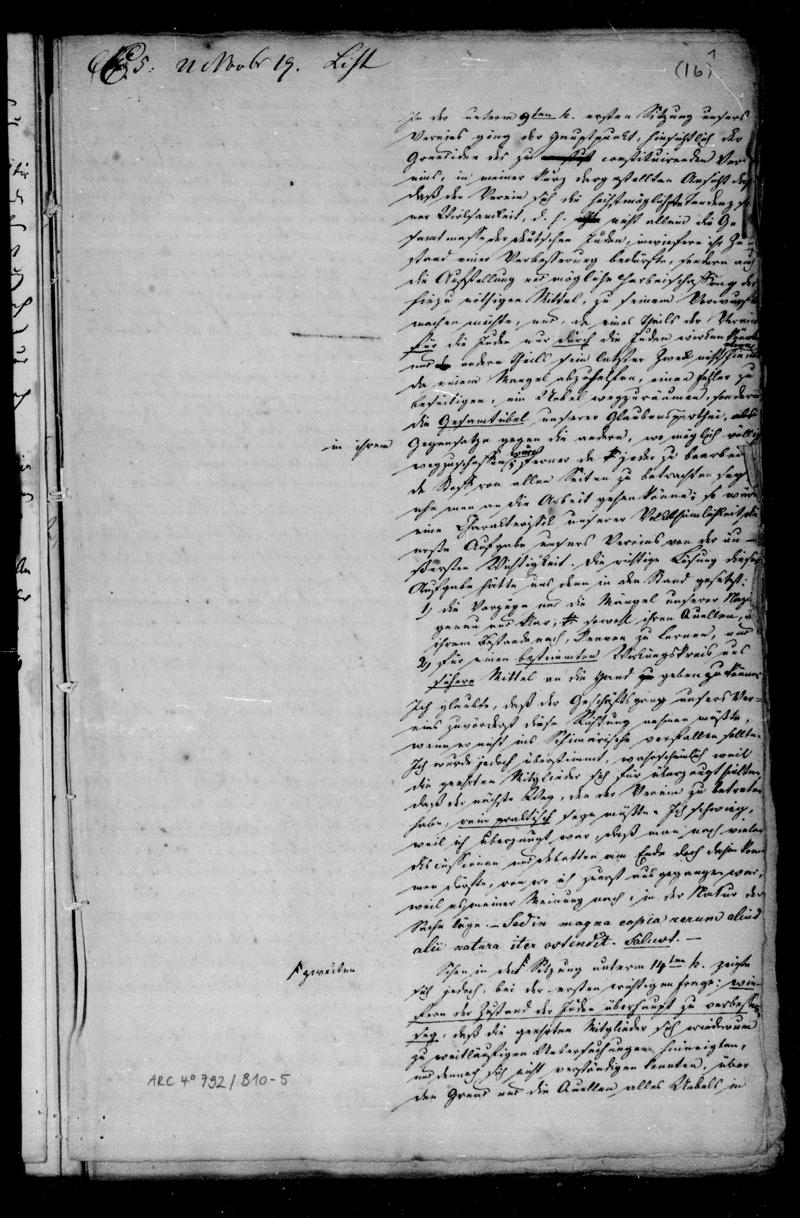 5. 21 Nobr 19. List
(16)
In der unterm 9ten h. ersten Sitzung unsers
Vereins ging der Hauptpunkt, hinsichtlich der
Grundidee des zu constituirenden Ver-
eins, in meiner kurz dargestellten Ansicht
daß der Verein sich die höchstmögliche Tendenz
ner Wirksamkeit, d. h. nicht allein die Ge-
samtmasse der deutschen Juden, inwiefern ihr Zu-
stand einer Verbesserung bedürfte, sondern auch
die Aufstellung und mögliche Herbeischaffung der
hiezu nöthigen Mittel, zu seinem Vorwurfe
machen müßte, und, da eines Theils der Verein
für die Juden nur durch die Juden wirken
und andern Theils sein letzter Zweck nicht
da einem Mangel abzuhelfen, einen Fehler zu
beseitigen, ein Uebel wegzuräumen, sondern
die Gesamtübel unserer Glaubensparthei,
in ihrem
Gegensatze gegen die andern, wo möglich völlig
wegzuschaffen wäre; ferner da jeder zu bearbei-
de Stoff von allen Seiten zu betrachten sey
ehe man an die Arbeit gehen könne; so wäre
eine Charakteristik unserer Volksthümlichkeit die
erste Aufgabe unsers Vereins von der äu-
ßersten Wichtigkeit. Die richtige Lösung dieser
Aufgabe hätte uns dann in den Stand gesetzt:
1) die Vorzüge und die Mängel unserer
genau und klar, sowohl ihren Quellen,
ihrem Bestande nach, kennen zu lernen, und
2) für einen bestimmten Wirkungskreis uns
sichere Mittel an die Hand geben zu können
Ich glaubte, daß der Geschäftsgang unsers Ver-
eins zuvörderst diese Richtung nehmen müßte,
wenn er nicht ins Schimärische verfallen sollte.
Ich wurde jedoch überstimmt, wahrscheinlich weil
die geehrten Mitglieder sich für überzeugt hielten,
daß der nächste Weg, den der Verein zu betreten
habe, rein praktisch seyn müßte. Ich schwieg,
weil ich überzeugt war, daß man nach vielen
Discussionen und Debatten am Ende doch dahin kom-
men dürfte, von wo ich zuerst ausgegangen war,
weil es meiner Meinung nach, in der Natur der
Sache läge. – Sed in magna copia rerum aliud
alii natura iter ostendit. Salust. –
zweiten
Schon in der Sitzung unterm 14ten h. zeigte
sich jedoch, bei der ersten wichtigen Frage: wie-
fern der Zustand der Juden überhaupt zu verbessern
sey, daß die geehrten Mitglieder sich wiederum
zu weitläufigen Untersuchungen hinneigten,
und dennoch sich nicht verständigen konnten, über
den Grund und die Quellen alles Uebels in
ARC 4° 792/B10-5